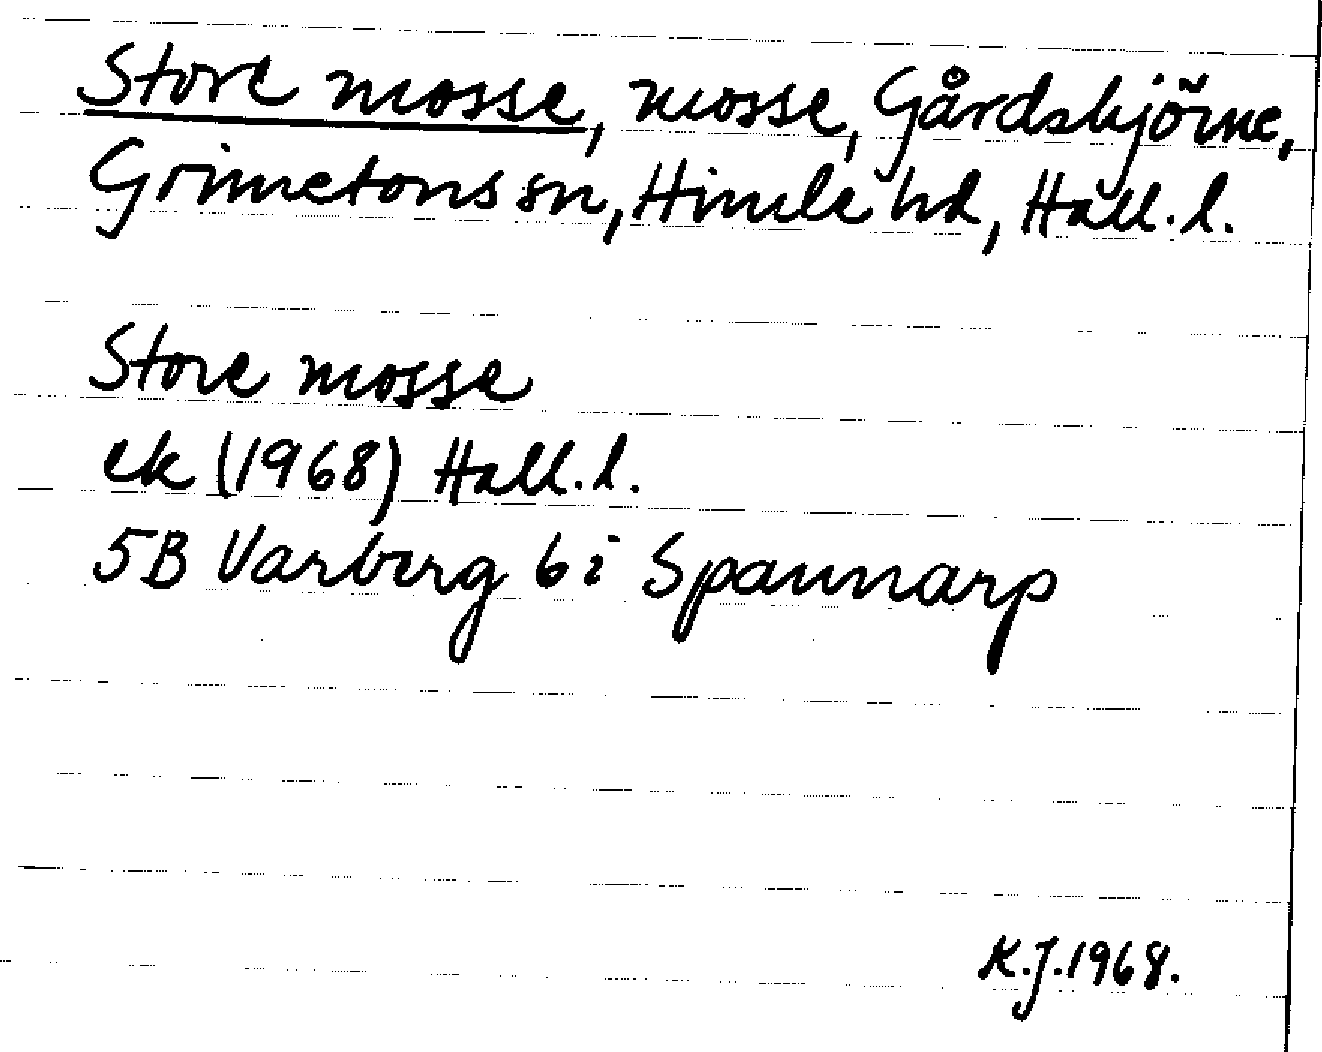 Store mosse, mosse, Gårdskjörne,
Grimetons sn, Himle hd, Hall.l.
Store mosse
ek (1968) Hall.l.
5B Varberg 6i Spannarp
K.J.1968.